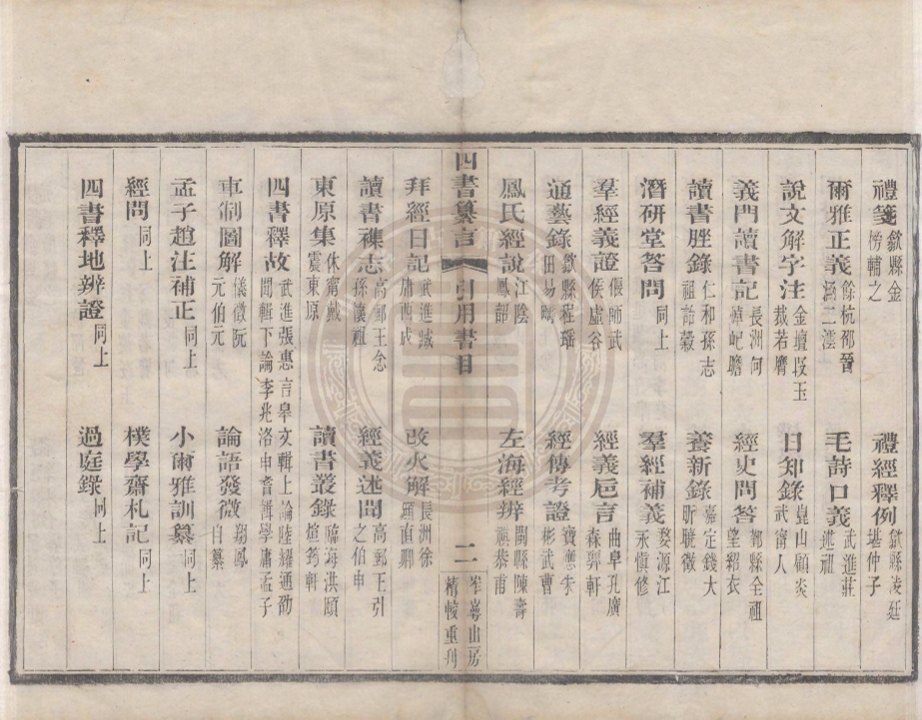 禮箋 歙縣金榜輔之 禮經釋例 歙縣凌廷堪仲子
爾雅正義 餘杭邵晉涵二澐 毛詩口義 武進莊述祖
說文解字注 金壇段玉裁若膺 日知錄 崑山顧炎武甯人
義門讀書記 長洲何焯屺瞻 經史問答 鄞縣全祖望紹衣
讀書脞錄 仁和孫志祖詒穀 養新錄 嘉定錢大昕曉徵
潛研堂答問 同上 羣經補義 婺源江永慎修
羣經義證 偃師武億虛谷 經義卮言 曲阜孔廣森㢲軒
通藝錄 歙縣程瑤田易疇 經傳考證 寶應朱彬武曹
鳳氏經說 江陰鳳韶 左海經辨 閩縣陳壽祺恭甫
四書纂言 引用書目 二 岝崿山房精校重刊
拜經日記 武進臧庸西成 改火解 長洲徐頲直卿
讀書襍志 高郵王念孫懷祖 經義述聞 高郵王引之伯申
東原集 休甯戴震東原 讀書叢錄 臨海洪頤煊筠軒
四書釋故 武進張惠言皋文輯上論陸耀遹劭聞輯下論李兆洛申耆輯學庸孟子
車制圖解 儀徵阮元伯元 論語發微 翔鳳自纂
孟子趙注補正 同上 小爾雅訓纂 同上
經問 同上 樸學齋札記 同上
四書釋地辨證 同上 過庭錄 同上